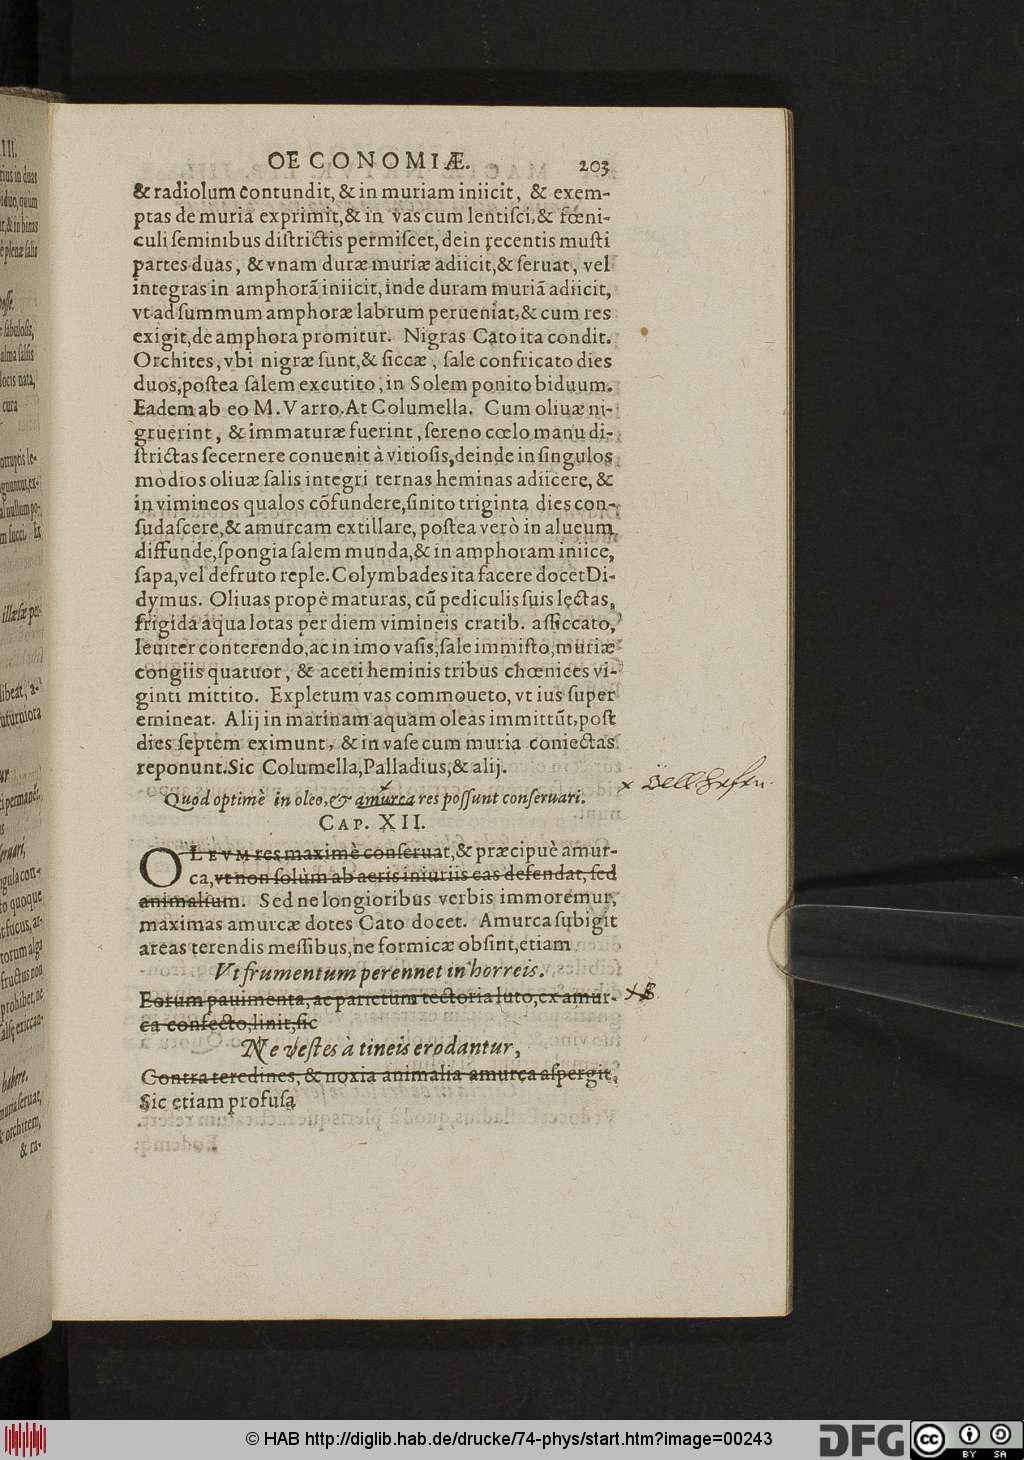 OE CONOMIÆ. 203
& radiolum contundit, & in muriam iniicit, & exem-
ptas de muria exprimit, & in vas cum lentisci, & fœni-
culi seminibus districtis permiscet, dein recentis musti
partes duas, & vnam duræ muriæ adiicit, & seruat, vel
integras in amphorā iniicit, inde duram muriā adiicit,
vt ad summum amphoræ labrum perueniat, & cum res
exigit, de amphora promitur. Nigras Cato ita condit.
Orchites, vbi nigræ sunt, & siccæ, sale confricato dies
duos, postea salem excutito, in Solem ponito biduum.
Eadem ab eo M. Varro. At Columella. Cum oliuæ ni-
gruerint, & immaturæ fuerint, sereno cœlo manu di-
strictas secernere conuenit à vitiosis, deinde in singulos
modios oliuæ salis integri ternas heminas adiicere, &
in vimineos qualos cōfundere, sinito triginta dies con-
sudascere, & amurcam extillare, postea verò in alueum
diffunde, spongia salem munda, & in amphoram iniice,
sapa, vel defruto reple. Colymbades ita facere docet Di-
dymus. Oliuas propè maturas, cū pediculis suis lectas,
frigida aqua lotas per diem vimineis cratib. assiccato,
leuiter conterendo, ac in imo vasis, sale immisto, muriæ
congiis quatuor, & aceti heminis tribus chœnices vi-
ginti mittito. Expletum vas commoueto, vt ius super
emineat. Alij in marinam aquam oleas immittūt, post
dies septem eximunt, & in vase cum muria coniectas
reponunt. Sic Columella, Palladius, & alij.
Quod optimè in oleo, & amurca res possunt conseruari.
CAP. XII.
OLEVM res maximè conseruat, & præcipuè amur-
ca, vt non solùm ab aeris iniuriis eas defendat, sed
animalium. Sed ne longioribus verbis immoremur,
maximas amurcæ dotes Cato docet. Amurca subigit
areas terendis messibus, ne formicæ obsint, etiam
Vt frumentum perennet in horreis.
Eorum pauimenta, ac parietum tectoria luto, ex amur-
ca confecto, linit, sic
Ne vestes à tineis erodantur,
Contra teredines, & noxia animalia amurca aspergit,
Sic etiam profusa
© HAB http://diglib.hab.de/drucke/74-phys/start.htm?image=00243
DFG
cc BY SA